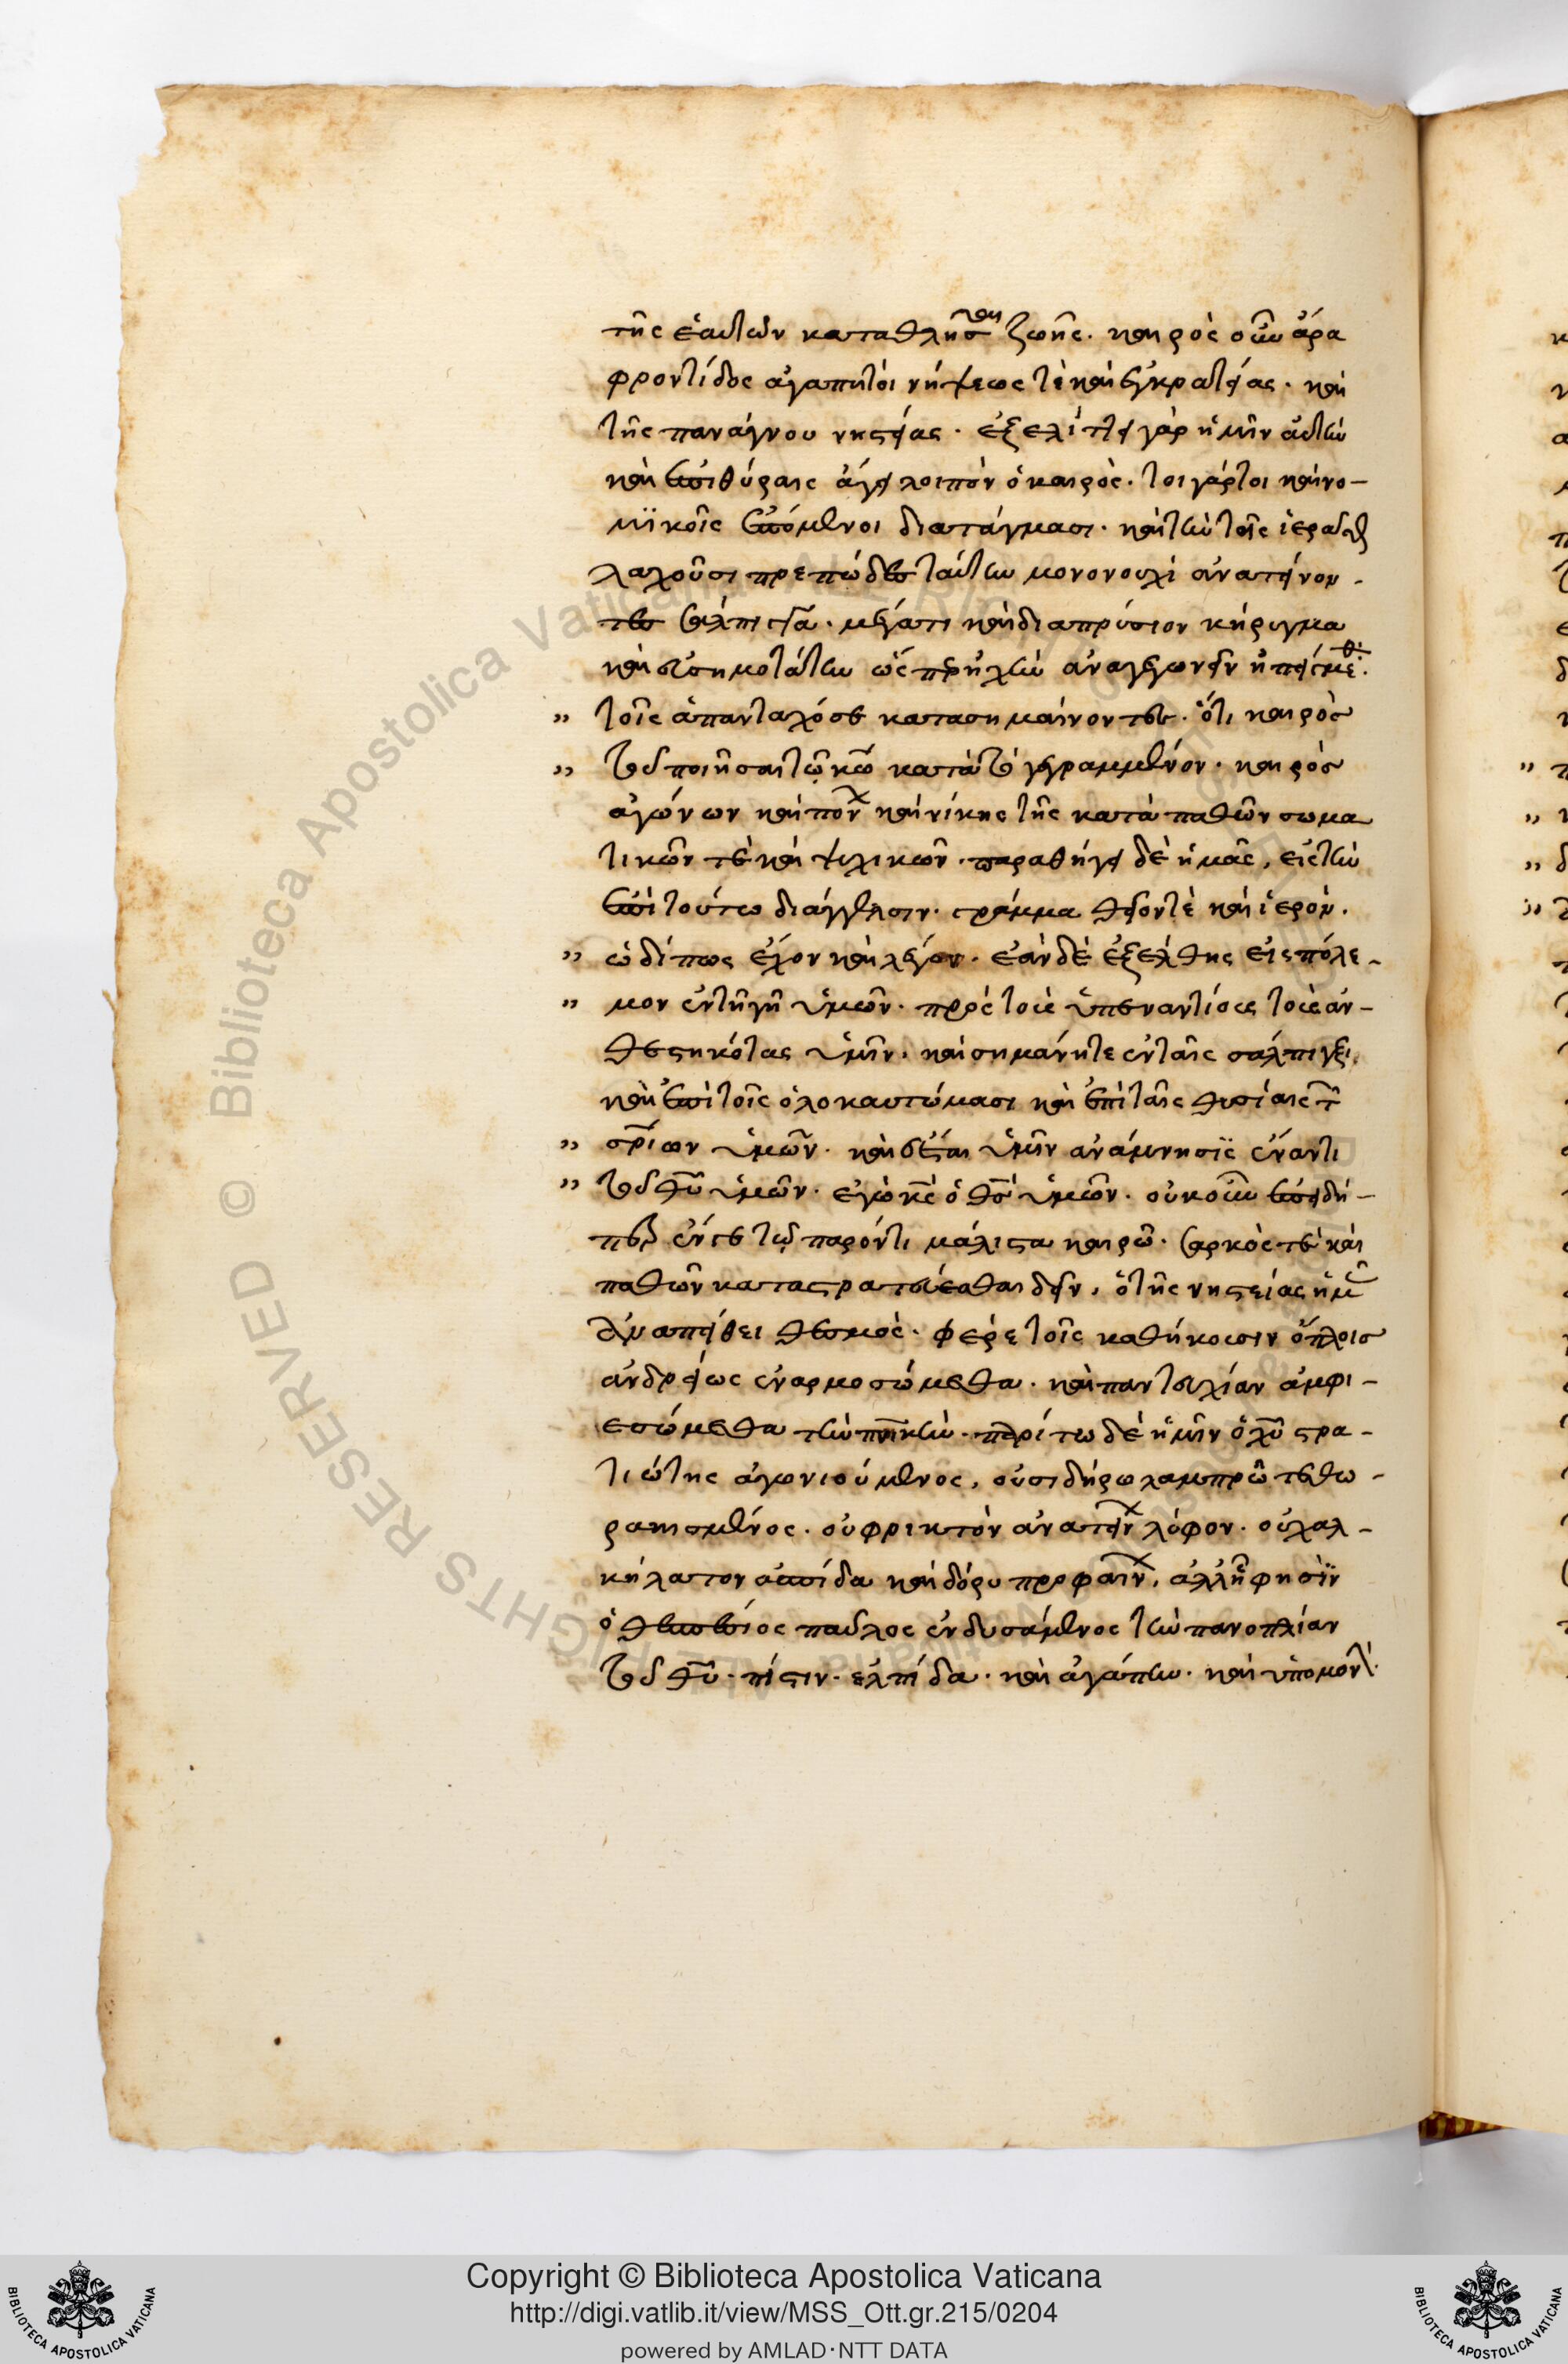 τῆς ἑαυτῶν καταθλῆσαι ζωῆς. καιρὸς οὖν ἄρα
φροντίδος ἀγαπητοὶ νήψεως τὲ καὶ ἐγκρατείας. καὶ
τῆς πανάγνου νηστείας. ἐξελίττει γὰρ ἡμῖν αὐτὴν
καὶ ἐπιθύραις ἄγει λοιπὸν ὁ καιρὸς. τοιγάρτοι καὶ νο-
μϊκοῖς ἑπόμενοι διατάγμασι. καὶ τὴν τοῖς ἱερᾶσθαι
λαχοῦσι πρεπωδεστάτην μονονουχὶ ἀνατείνον-
τες σάλπιγγα. μέγά τι καὶ διαπρύσιον κήρυγμα
καὶ εὐσημοτάτην ὥσπερ ἠχὴν ἀναγεγωνεῖν ἠπείγμεθα.
" τοῖς ἁπανταχόσε κατασημαίνοντες. ὅτι καιρὸς
" τοῦ ποιῆσαι τῷ κῶ κατὰ τὸ γεγραμμένον. καιρὸς
ἀγώνων καὶ πόνων καὶ νίκης τῆς κατὰ παθῶν σωμα
τικῶν τὲ καὶ ψυχικῶν. παραθήγει δὲ ἡμᾶς, εἰς τὴν
ἐπὶ τούτω διάγγελσιν. γράμμα θεῖον τὲ καὶ ἱερὸν.
" ὡδί πως ἔχον καὶ λέγον. ἐὰν δὲ ἐξέλθης εἰς πόλε-
" μον ἐν τῆ γῆ ὑμῶν. πρὸς τοὺς ὑπεναντίους τοὺς ἀν-
θεστηκότας ὑμῖν. καὶ σημάνητε ἐν ταῖς σάλπιγξι.
καὶ ἐπὶ τοῖς ὁλοκαυτώμασι καὶ ἐπὶ ταῖς θυσίαις τῶν
" σρίων ὑμῶν. καὶ ἔσται ὑμῖν ἀνάμνησϊς ἔναντι
" τοῦ θῦ ὑμῶν. ἐγὼ κς ὁ θς ὑμῶν. οὐκοῦν ἐπειδή-
περ ἔν γε τῷ παρόντι μάλιστα καιρῶ. σαρκὸς τὲ καὶ
παθῶν καταστρατεύεσθαι δεῖν, ὁ τῆς νηστείας ἡμᾶς
ἀναπείθει θεσμὸς. φέρε τοῖς καθήκουσιν ὅπλοις
ἀνδρείως ἐναρμοσώμεθα. καὶ παντευχίαν ἀμφι-
εσώμεθα τὴν πνικὴν. παρίτω δὲ ἡμῖν ὁ χῦ στρα-
τιώτης ἀγωνιούμενος, οὐ σιδήρω λαμπρῶ τεθω-
ρακισμένος. οὐ φρικτὸν ἀνατείνων λόφον. οὐ χαλ-
κήλατον ἀσπίδα καὶ δόρυ προφαίνων, ἀλλ' ᾗ φησὶν
ὁ θεσπέσιος παῦλος ἐνδυσάμενος τὴν πανοπλίαν
τοῦ θῦ. πίστιν. ἐλπίδα. καὶ ἀγάπην. καὶ ὑπομονὴν.
Copyright © Biblioteca Apostolica Vaticana
http://digi.vatlib.it/view/MSS_Ott.gr.215/0204
powered by AMLAD·NTT DATA